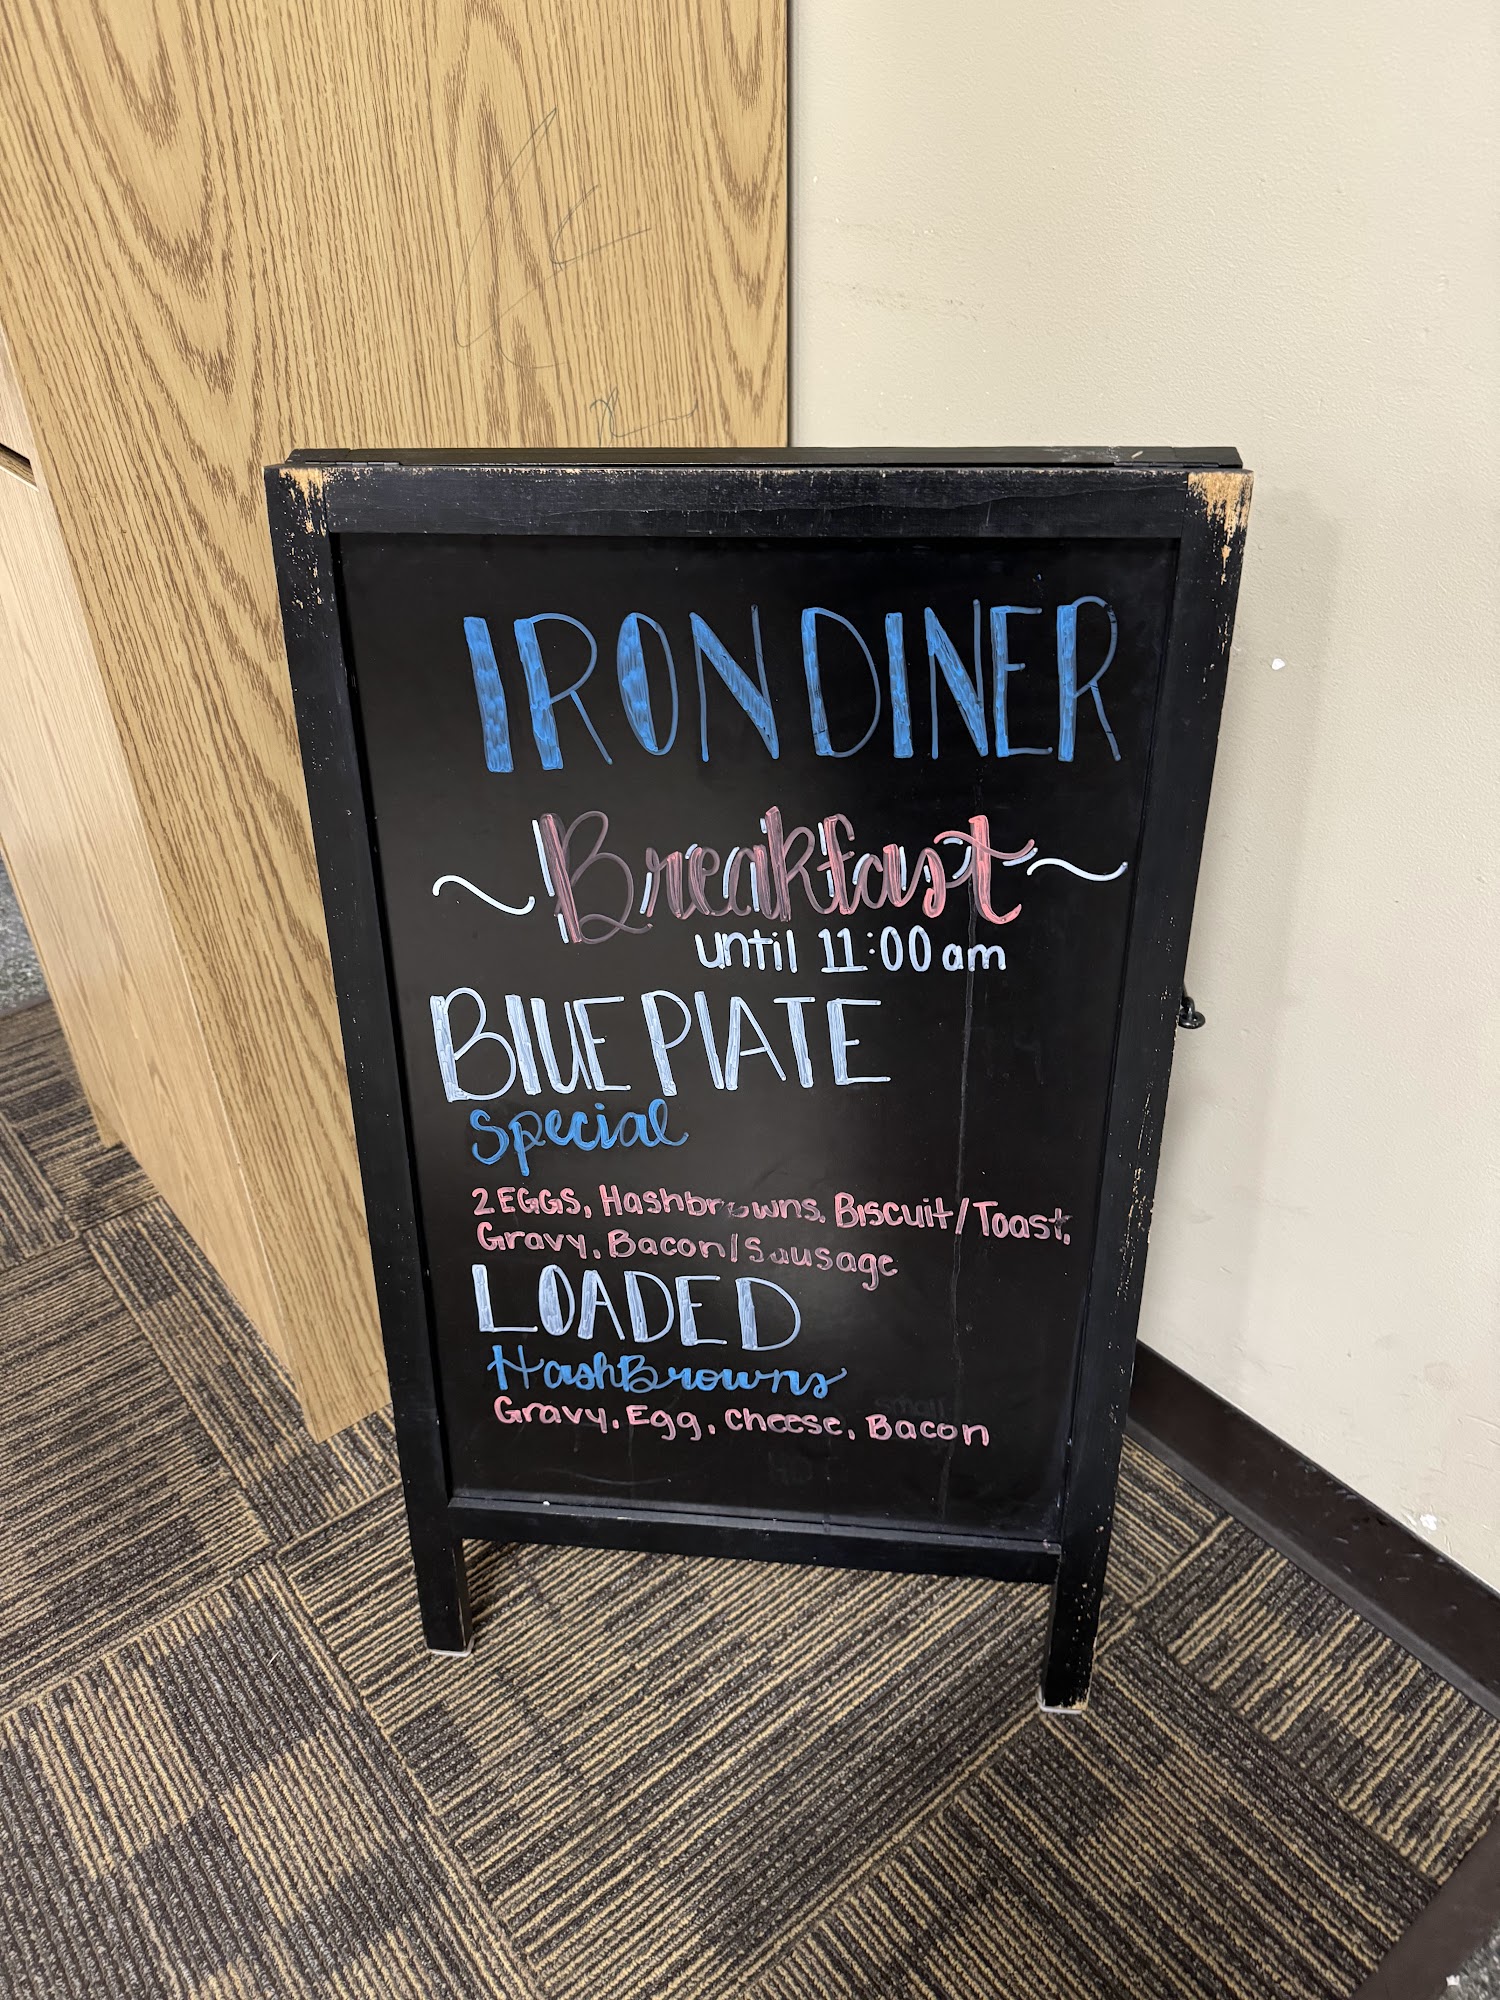 IRON DINER
~ Breakfast ~
until 11:00 am
BLUE PLATE
Special
2 EGGS, Hashbrowns, Biscuit/Toast,
Gravy, Bacon/Sausage
LOADED
HashBrowns
Gravy, Egg, cheese, Bacon